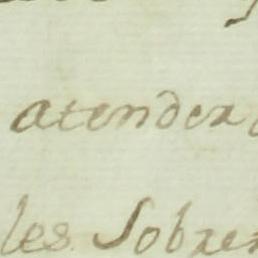 atender
les Sobre